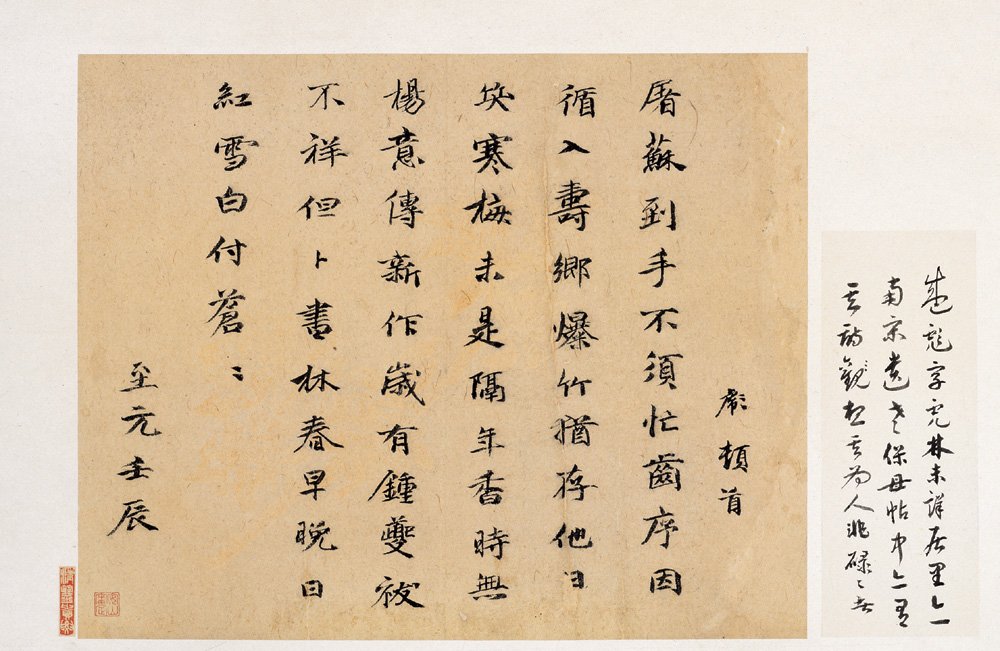 盛彪字虎林未詳居里亦一
南宋遺老保母帖中亦有
其詩觀其為人非碌〻者
彪頓首
屠蘇到手不須忙齒序因
循入壽鄉爆竹猶存他日
笑寒梅未是隔年香時無
楊意傳新作歲有鍾夔祓
不祥但卜書林春早晚日
紅雪白付蒼〻
至元壬辰